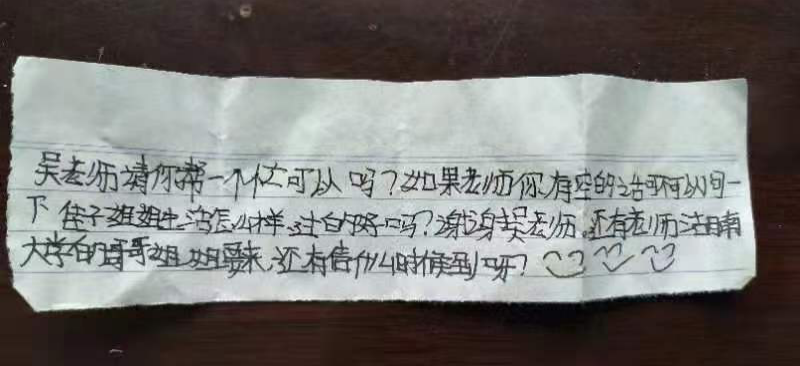 吴老师请你帮一个忙可以吗?如果老师你有空的话可不可以问一
下佳子姐姐生活怎么样,过的好吗?谢谢吴老师,还有老师
大学的哥哥姐姐要来,还有信什么时候到呀?